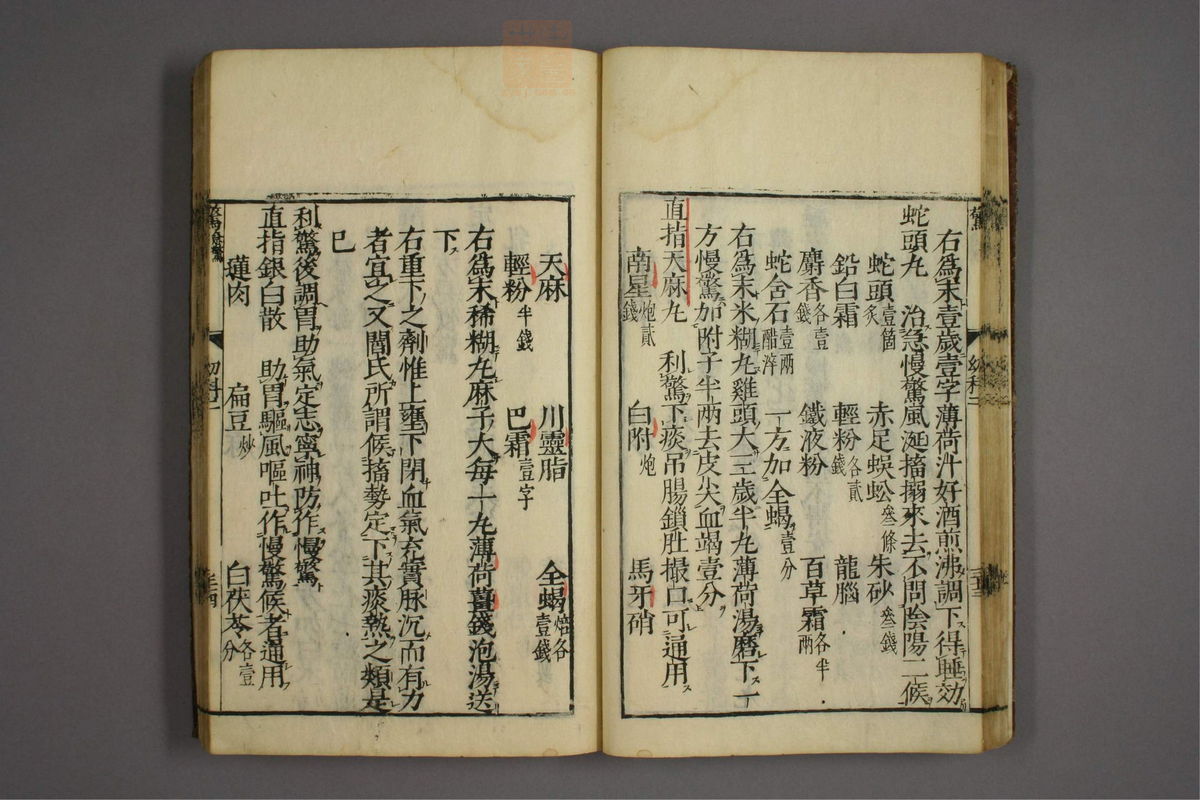 右為末壹歲壹字薄荷汁好酒煎沸調下得睡効
蛇頭丸 治急慢驚風涎搐搦來去不問陰陽二候
蛇頭壹箇炙 赤足蜈蚣叄條 朱砂叄錢
鉛白霜 輕粉各貳錢 龍腦
麝香各壹錢 鐵液粉 百草霜各半兩
蛇含石壹兩醋淬 一方加全蝎壹分
右為末米糊丸雞頭大三歲半丸薄荷湯磨下一
方慢驚加附子半兩去皮尖血竭壹分
直指天麻丸 利驚下痰吊腸鎖肚撮口可通用
南星炮貳錢 白附炮 馬牙硝
天麻 川靈脂 全蝎焙各壹錢
輕粉半錢 巴霜壹字
右為末稀糊丸麻子大每一丸薄荷薑錢泡湯送
下
右重下之劑惟上壅下閉血氣充實脉沉而有力
者宜之又閻氏所謂候搐勢定下其痰熱之類是
巳
利驚後調胃助氣定志寧神防作慢驚
直指銀白散 助胃驅風嘔吐作慢驚候者通用
蓮肉 扁豆炒 白茯苓各壹分
驚
幼科二
幼科二